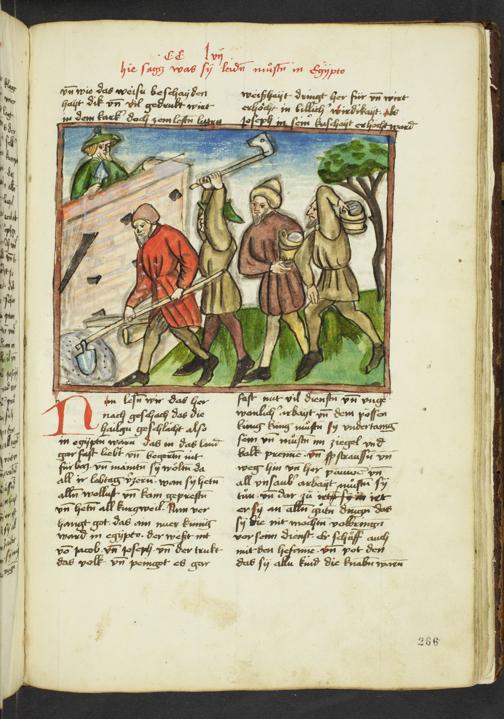 CC lvij
hie sagz was sy leidn müstn in Egipto
vn wie das weisu beschayden
hayt dik vn vil gedrukt wirt
in dem kark doch zem lestn
weishayt dringt her für vn wirt
erhöcht in billich wirdikayt als
Joseph in sein kaschayt erhöcht ward
Nun lesn wir das her
nach geschach das die
hailgn geschlächt also
in egiptn warn das in das lant
gar fast liebt vn begertn nit
fürbas vn mantn sy wöltn da
all ir lebtag vzern wan sy hetn
alln wollust vn kain geprestn
vn hetn all kurtzweil Nun ver
hangt got das ain nuer kunig
ward in egipto der west nit
vo jacob vn joseph vn der trukt
das volk vn peingot es gar
fast mit vil dienstn vn vnge
wonlich arbayt vn dem possen
kung müstn sy vndertaenig
sein vn müstn im ziegel vnd
kalk prenne vn straussn vn
weg hin vn her pauwe vn
all vnsaub arbayt müstn sy
tün vn dar zü
er sy an alln gutn dingn das
sy die nit mochtn volbringn
vor senn dienst Er schüff auch
mit den hefame vn pot den
das sy allu kind die knabn warn
266